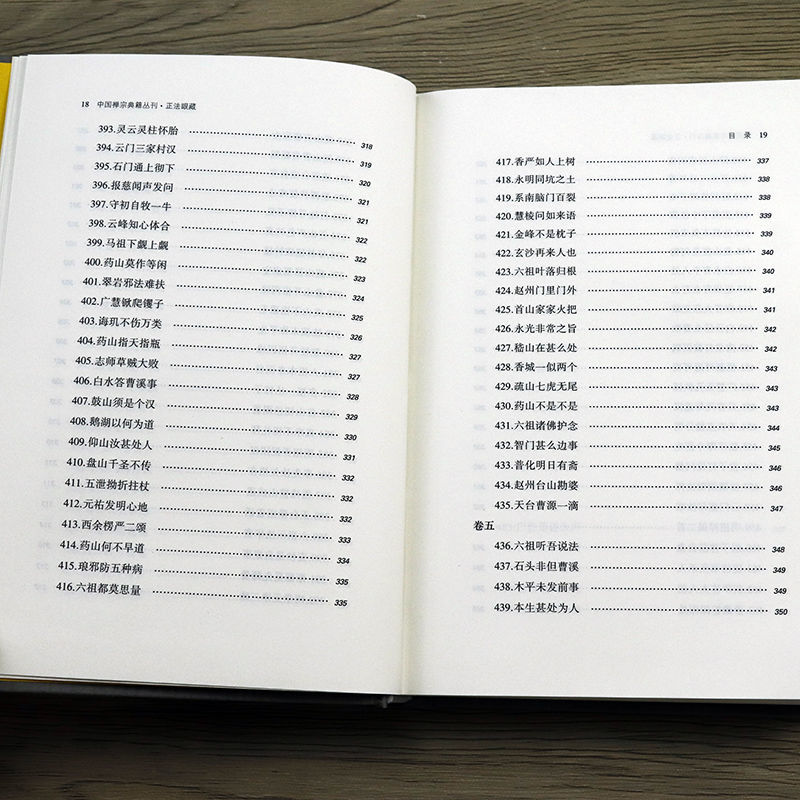 18 中国禅宗典籍丛刊·正法眼藏
393.灵云灵柱怀胎 318
394.云门三家村汉 319
395.石门通上彻下 320
396.报慈闻声发问 321
397.守初自牧一牛 321
398.云峰知心体合 322
399.马祖下觑上觑 322
400.药山莫作等闲 323
401.翠岩邪法难扶 324
402.广慧锨爬镬子 325
403.诲玑不伤万类 326
404.药山指天指瓶 327
405.志师草贼大败 327
406.白水答曹溪事 328
407.鼓山须是个汉 329
408.鹅湖以何为道 330
409.仰山汝甚处人 331
410.盘山千圣不传 332
411.五泄拗折拄杖 332
412.元祐发明心地 332
413.西余楞严二颂 332
414.药山何不早道 334
415.琅邪防五种病 335
416.六祖都莫思量 335
目录 19
417.香严如人上树 337
418.永明同坑之土 338
419.系南脑门百裂 338
420.慧棱问如来语 339
421.金峰不是枕子 339
422.玄沙再来人也 340
423.六祖叶落归根 340
424.赵州门里门外 341
425.首山家家火把 341
426.永光非常之旨 342
427.嵇山在甚么处 342
428.香城一似两个 343
429.疏山七虎无尾 343
430.药山不是不是 343
431.六祖诸佛护念 344
432.智门甚么边事 345
433.普化明日有斋 346
434.赵州台山勘婆 346
435.天台曹源一滴 347
卷五
436.六祖听吾说法 348
437.石头非但曹溪 349
438.木平未发前事 349
439.本生甚处为人 350